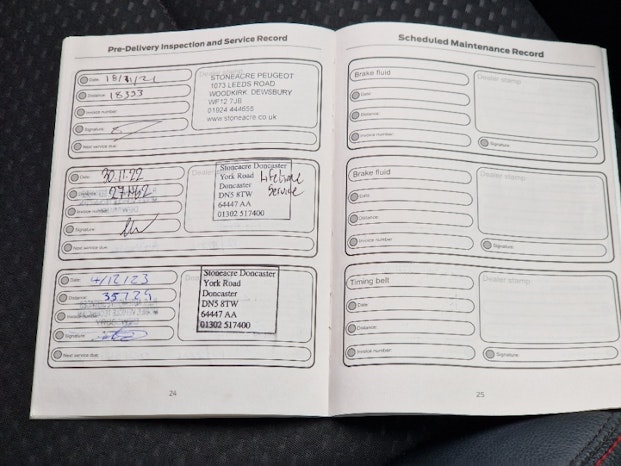 Pre-Delivery Inspection and Service Record
Date: 18/11/21
Distance: 18333
Invoice number:
Signature:
Next service due:
Dealer
STONEACRE PEUGEOT
1073 LEEDS ROAD
WOODKIRK, DEWSBURY
WF12 7JB
01924 444655
www.stoneacre.co.uk
Date: 30.11.22
Distance: 27462
Invoice number:
Signature:
Next service due:
Dealer
Stoneacre Doncaster
York Road
Doncaster
DN5 8TW
64447 AA
01302 517400
Lifetime
Service
Date: 4/12/23
Distance: 35729
Invoice number:
Signature:
Next service due:
Stoneacre Doncaster
York Road
Doncaster
DN5 8TW
64447 AA
01302 517400
24
Scheduled Maintenance Record
Brake fluid
Date:
Distance:
Invoice number:
Dealer stamp:
Signature:
Brake fluid
Date:
Distance:
Invoice number:
Dealer stamp:
Signature:
Timing belt
Date:
Distance:
Invoice number:
Dealer stamp:
Signature:
25